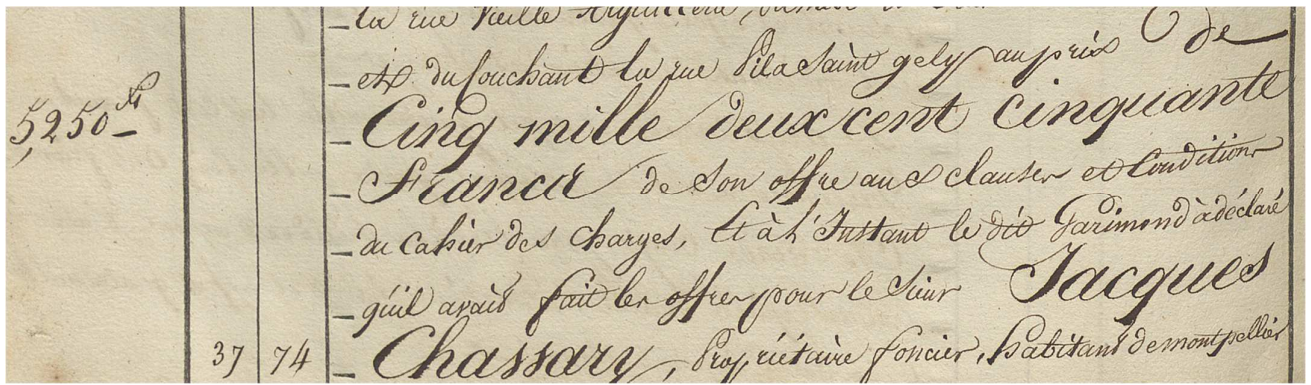 la rue Vieille Aiguillerie,
et du Couchant la rue Pila Saint gely au prix de
5,250 fr Cinq mille deux cent cinquante
Francs de son offre aux clauses et Conditions
du cahier des charges, Et à l'Instant le dit Garimond à déclaré
qu'il avait fait les offres pour le Sieur Jacques
37 74 Chassary, Propriétaire foncier, habitant de montpellier